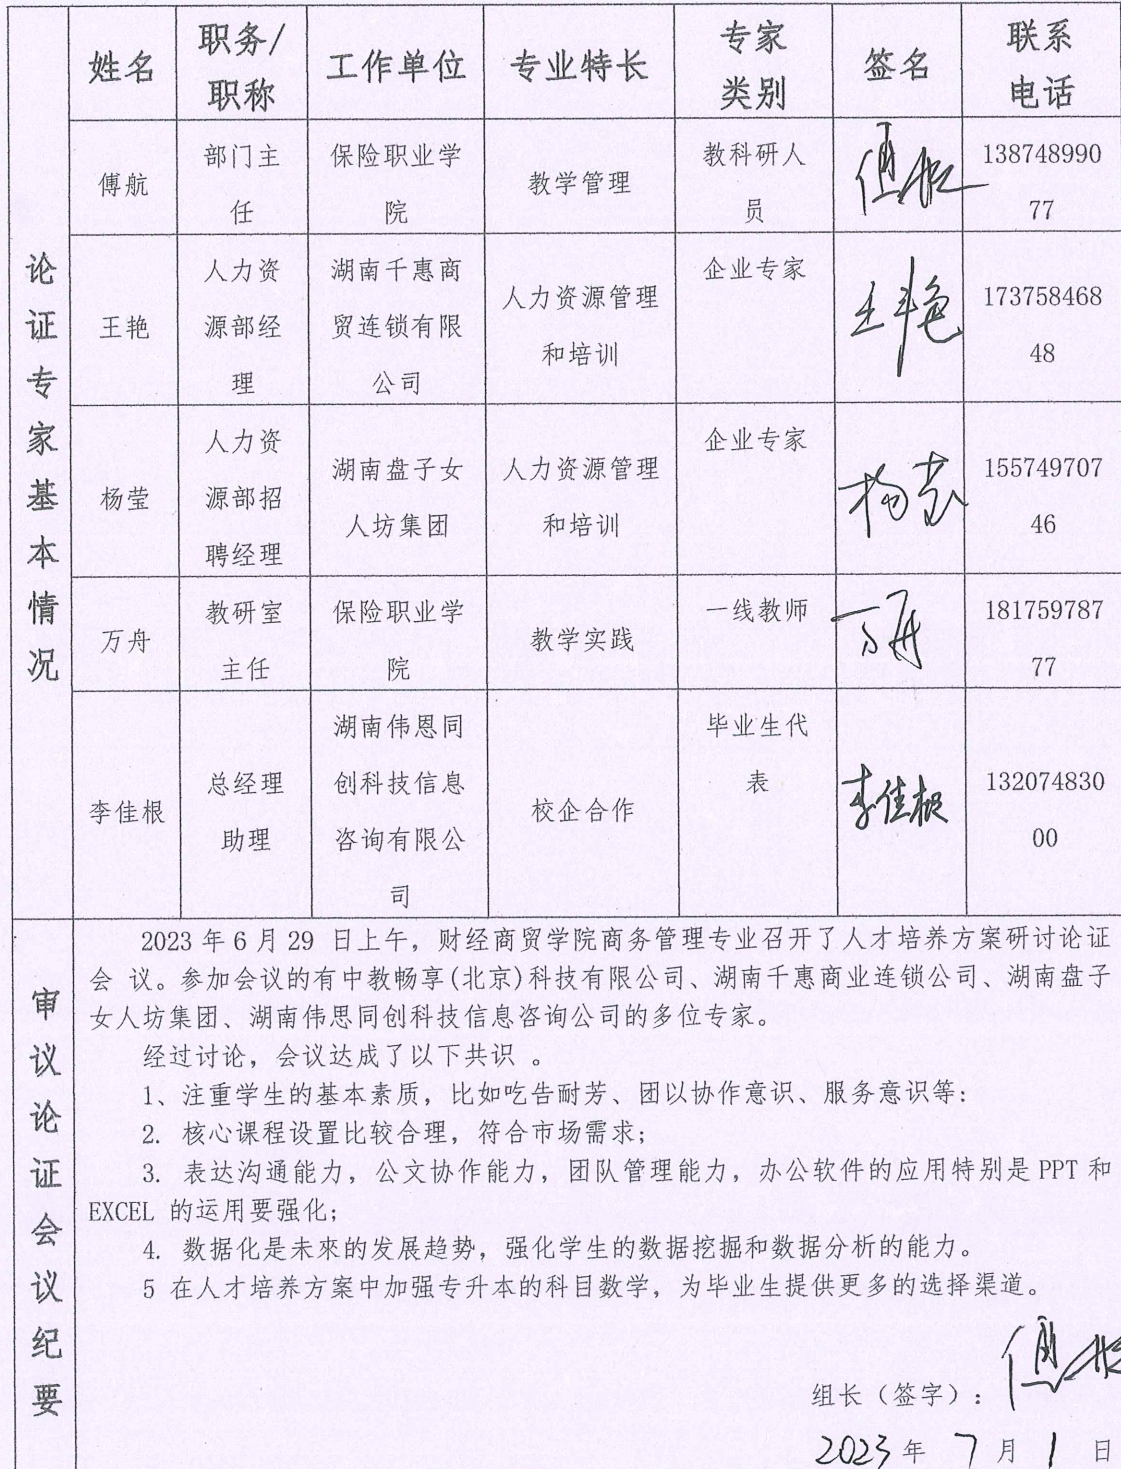 论证专家基本情况
姓名
职务/
职称
工作单位
专业特长
专家
类别
签名
联系
电话
傅航
部门主
任
保险职业学
院
教学管理
教科研人
员
傅航
138748990
77
王艳
人力资
源部经
理
湖南千惠商
贸连锁有限
公司
人力资源管理
和培训
企业专家
王艳
173758468
48
杨莹
人力资
源部招
聘经理
湖南盘子女
人坊集团
人力资源管理
和培训
企业专家
杨莹
155749707
46
万舟
教研室
主任
保险职业学
院
教学实践
一线教师
万舟
181759787
77
李佳根
总经理
助理
湖南伟恩同
创科技信息
咨询有限公
司
校企合作
毕业生代
表
李佳根
132074830
00
审议论证会议纪要
2023 年 6 月 29 日上午，财经商贸学院商务管理专业召开了人才培养方案研讨论证
会 议。参加会议的有中教畅享(北京)科技有限公司、湖南千惠商业连锁公司、湖南盘子
女人坊集团、湖南伟思同创科技信息咨询公司的多位专家。
经过讨论，会议达成了以下共识 。
1、注重学生的基本素质，比如吃告耐芳、团以协作意识、服务意识等：
2. 核心课程设置比较合理，符合市场需求；
3. 表达沟通能力，公文协作能力，团队管理能力，办公软件的应用特别是 PPT 和
EXCEL 的运用要强化；
4. 数据化是未來的发展趋势，强化学生的数据挖掘和数据分析的能力。
5 在人才培养方案中加强专升本的科目数学，为毕业生提供更多的选择渠道。
组长（签字）：傅航
2023 年 7 月 1 日